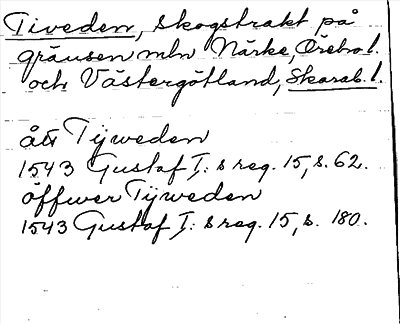 Tiveden, skogstrakt på
gränsen mln Närke, Örebro l.
och Västergötland, Skarab. l.
ått Tijweden
1543 Gustaf I: s reg. 15, s. 62.
öffwer Tijweden
1543 Gustaf I: s reg. 15, s. 180.